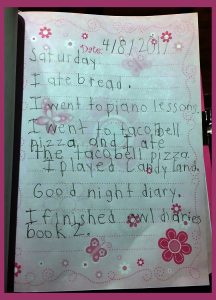 Date: 4/8/2017
Saturday.
I ate bread.
I went to piano lesson.
I went to taco bell
pizza, and I ate
the taco bell pizza.
I played Candy land.
Good night diary.
I finished owl diaries
book 2.